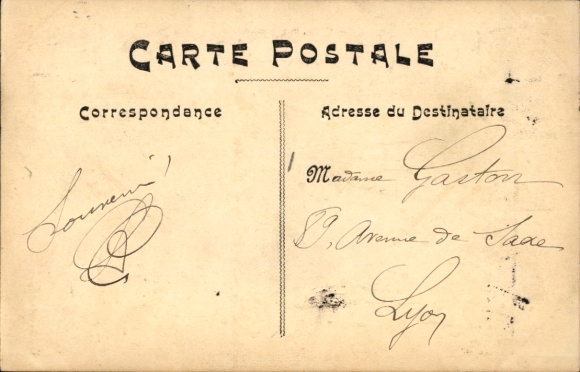 CARTE POSTALE
Correspondance
Adresse du Destinataire
Souvenir !
Madame Gaston
89, Avenue de Saxe
Lyon